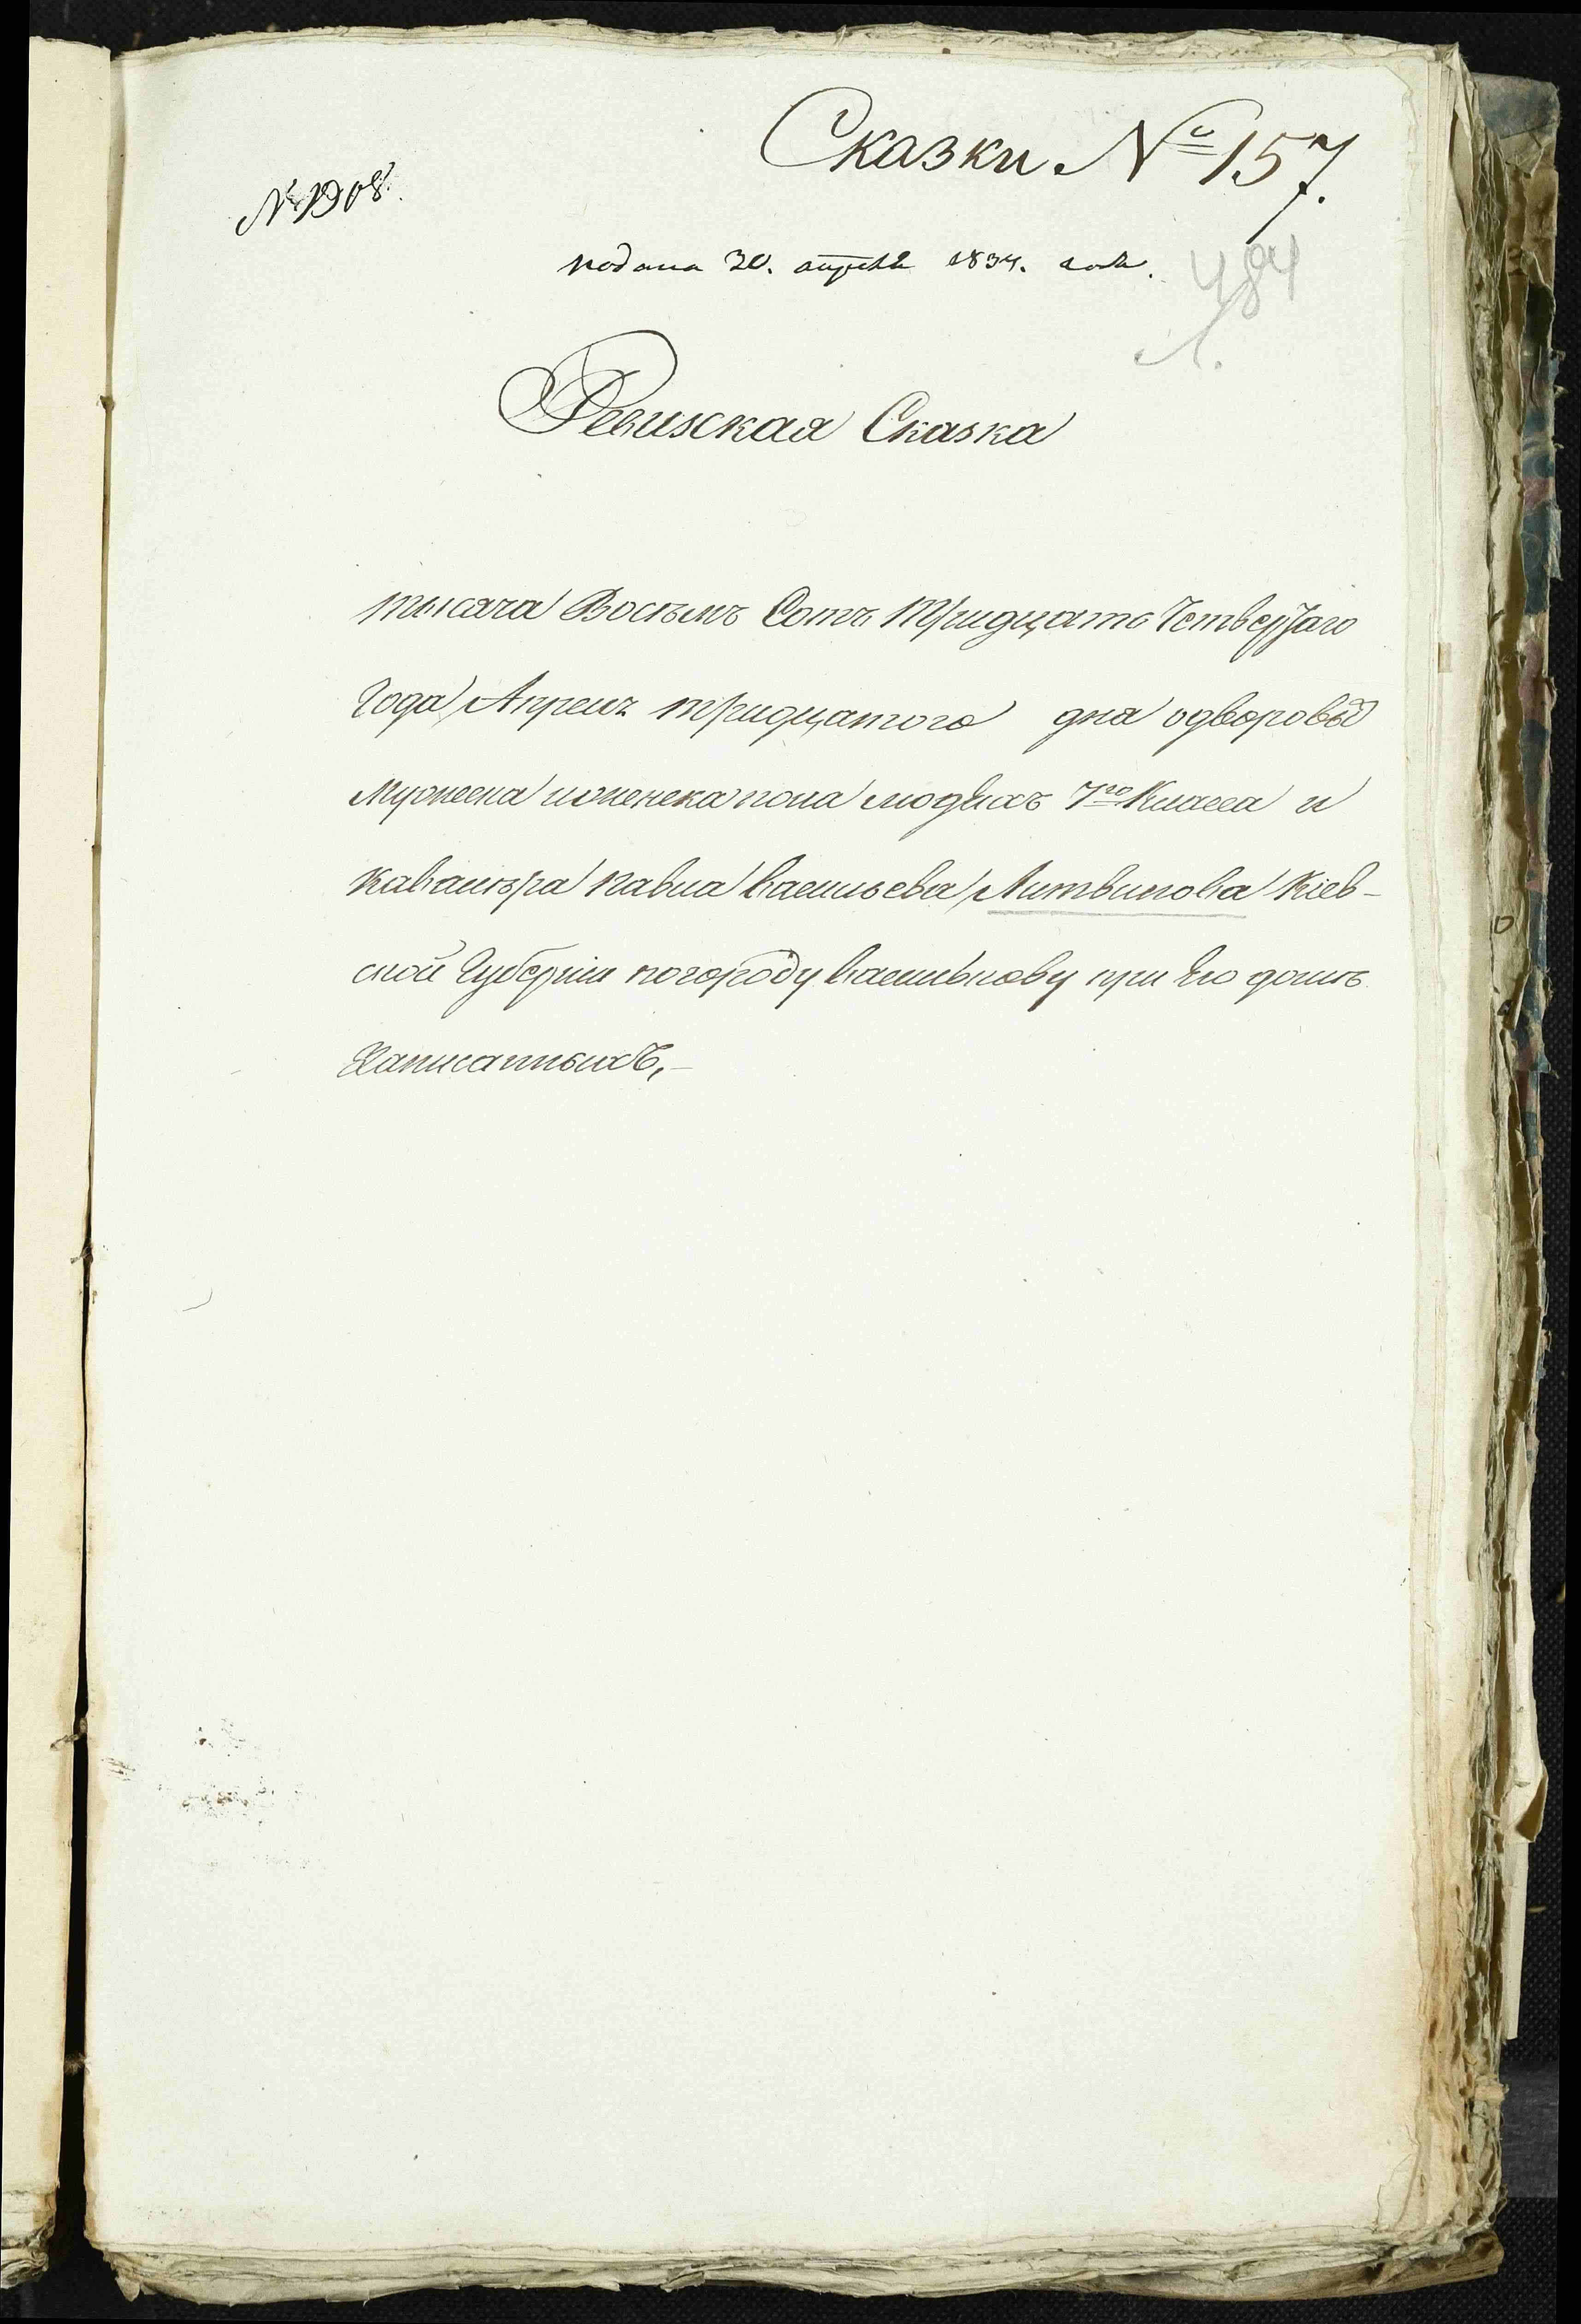 Сказки № 157.
№ 1908.
подана 30. апреля 1834. года.
484
л.
Ревизская Сказка
тысяча Восемъ Сотъ тридцать Четвертаго
Года Апреля тридцатого дня одворовых
Мужеска иженска пола людяхъ 7го Класса и
Кавалера Павла Васильева Литвинова Кіев-
ской Губерніи погороду Василькову при Его доми
Написанныхъ,-